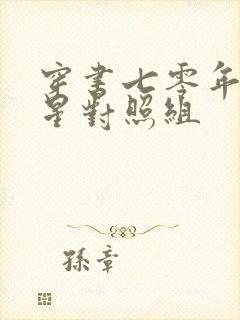 穿書七零年
星對照組
孫章